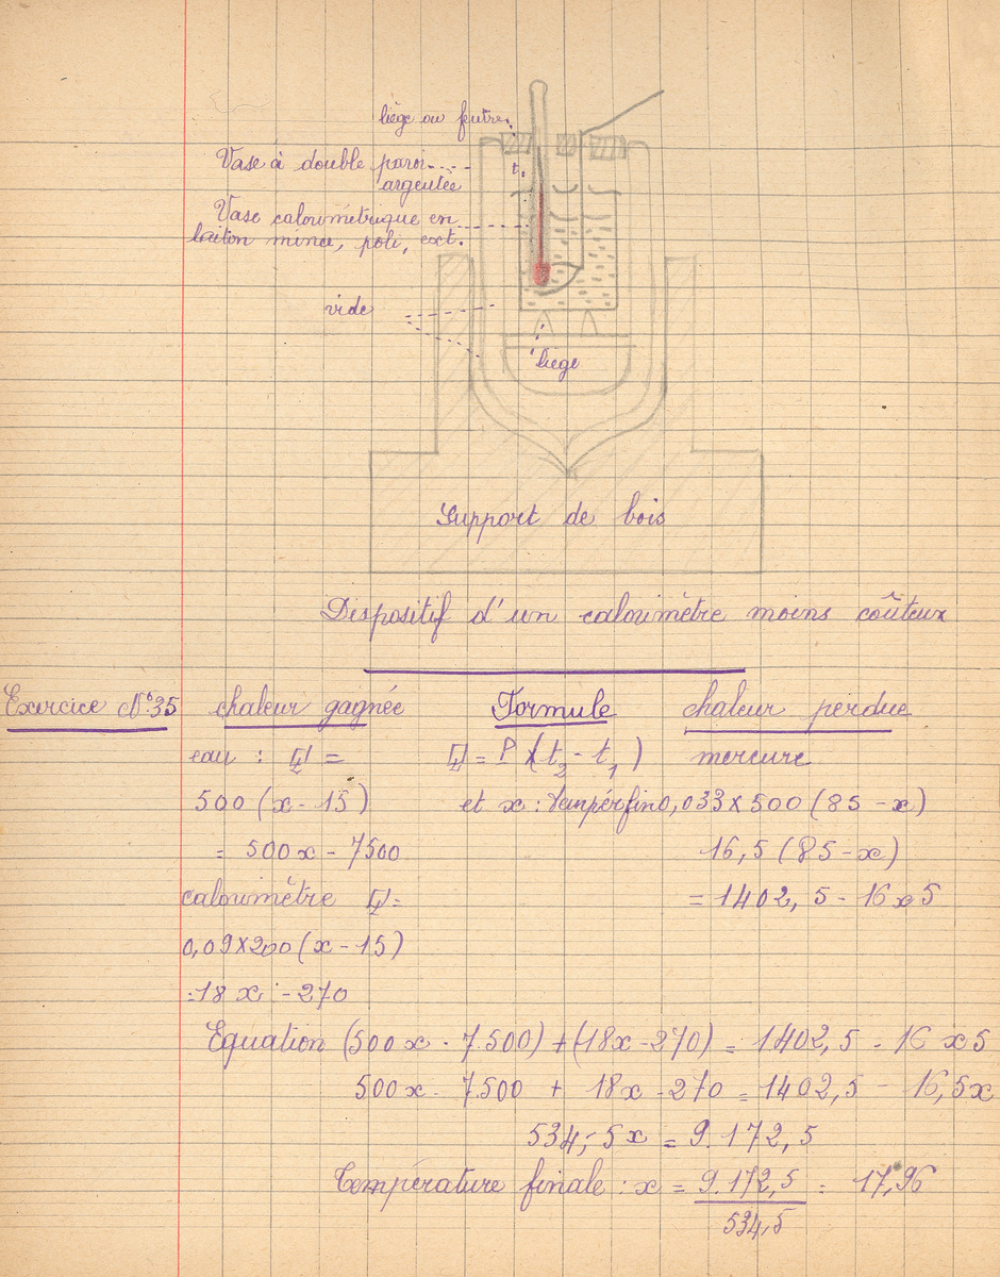 liège ou feutre
Vase à double paroi
argentée
t,
Vase calorimétrique en
laiton mince, poli, ext.
vide
liège
Support de bois
Dispositif d'un calorimètre moins coûteux
Exercice N°35 chaleur gagnée Formule chaleur perdue
eau : Q = Q = P (t2 - t1) mercure
500 (x - 15) et x : 0,033 x 500 (85 - x)
= 500 x - 7500 16,5 (85 - x)
calorimètre Q = = 1402, 5 - 16 x 5
0,09 x 200 (x - 15)
= 18 x - 270
Equation (500 x - 7.500) + (18x - 270) = 1402,5 - 16 x5
500x - 7.500 + 18x - 270 = 1402,5 - 16,5x
534,5x = 9.172,5
Température finale : x = 9.172,5 = 17,96
534,5